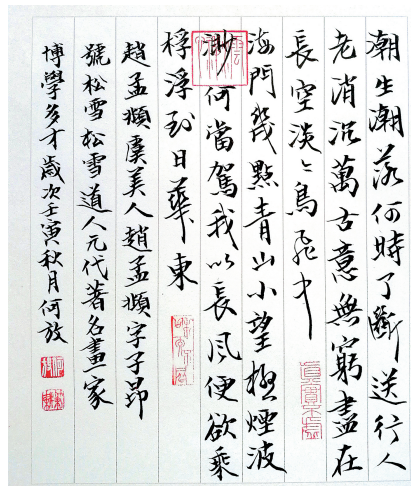 潮生潮落何時了斷送行人
老消沉萬古意無窮盡在
長空淡々鳥飛中
真實不虛
海門幾點青山小望極煙波
渺何當駕我以長風便欲乘
桴浮到日華東
趙孟頫虞美人趙孟頫字子昂
號松雪松雪道人元代著名畫家
博學多才歲次壬寅秋月何放